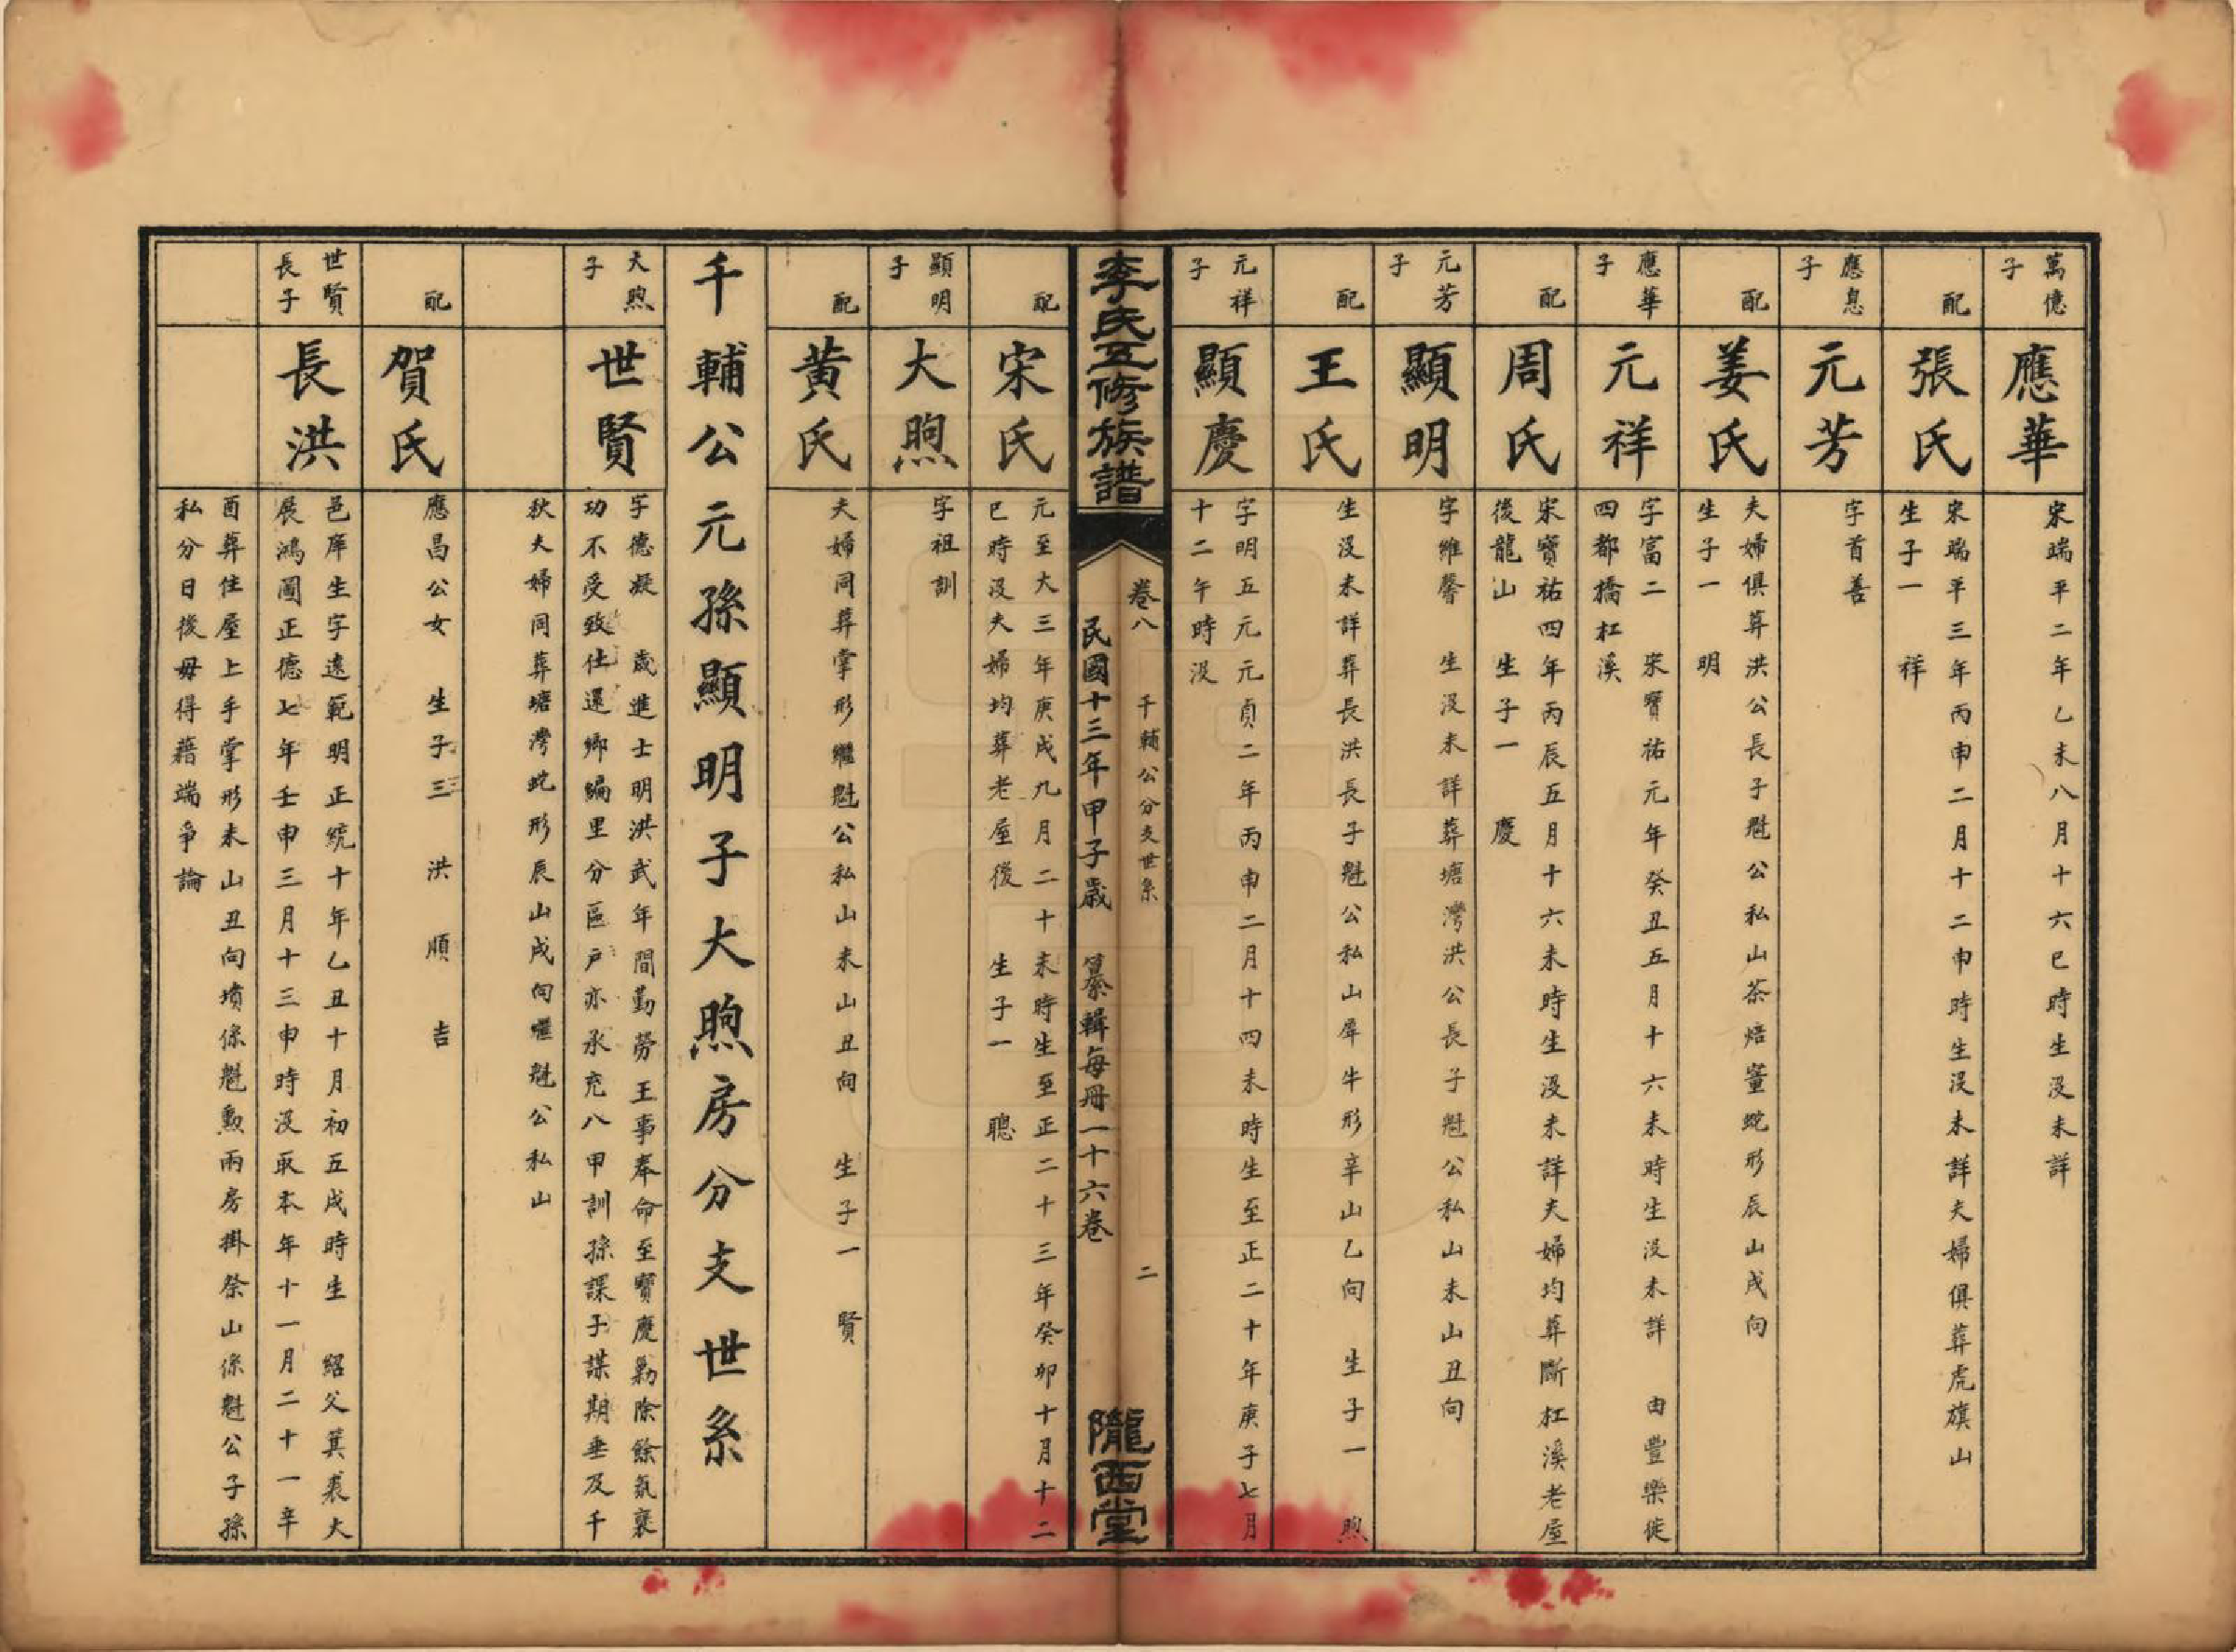 萬億子
應華
宋端平二年乙未八月十六巳時生沒未詳
配
張氏
宋端平三年丙申二月十二申時生沒未詳夫婦俱葬虎旗山
生子一　祥
應息子
元芳
字首善
配
姜氏
夫婦俱葬洪公長子魁公私山茶焙窠蛇形辰山戌向
生子一　明
應華子
元祥
字富二　宋寶祐元年癸丑五月十六未時生沒未詳　由豐樂徙
四都橋杠溪
配
周氏
宋寶祐四年丙辰五月十六未時生沒未詳夫婦均葬斷杠溪老屋
後龍山　生子一　慶
元芳子
顯明
字維馨　生沒未詳葬塘灣洪公長子魁公私山未山丑向
配
王氏
生沒未詳葬長洪長子魁公私山犀牛形辛山乙向　生子一　煦
元祥子
顯慶
字明五元元貞二年丙申二月十四未時生至正二十年庚子七月
十二午時沒
李氏五修族譜
卷八　千輔公分支世系　二
民國十三年甲子歲　纂輯每冊一十六卷
隴西堂
配
宋氏
元至大三年庚戌九月二十未時生至正二十三年癸卯十月十二
巳時沒夫婦均葬老屋後　生子一　聰
顯明子
大煦
字祖訓
配
黃氏
夫婦同葬掌形繼魁公私山未山丑向　生子一　賢
千輔公元孫顯明子大煦房分支世系
大煦子
世賢
字德凝　歲進士明洪武年間勤勞王事奉命至寶慶勦除餘氛褒
功不受致仕還鄉編里分區戶亦承充八甲訓孫課子謀期垂及千
秋夫婦同葬塘灣蛇形辰山戌向繼魁公私山
配
賀氏
應昌公女　生子三　洪　順　吉
世賢長子
長洪
邑庠生字遠範明正統十年乙丑十月初五戌時生　紹父箕裘大
展鴻圖正德七年壬申三月十三申時沒取本年十一月二十一辛
酉葬住屋上手掌形未山丑向墳係魁勲兩房掛祭山係魁公子孫
私分日後毋得藉端爭論